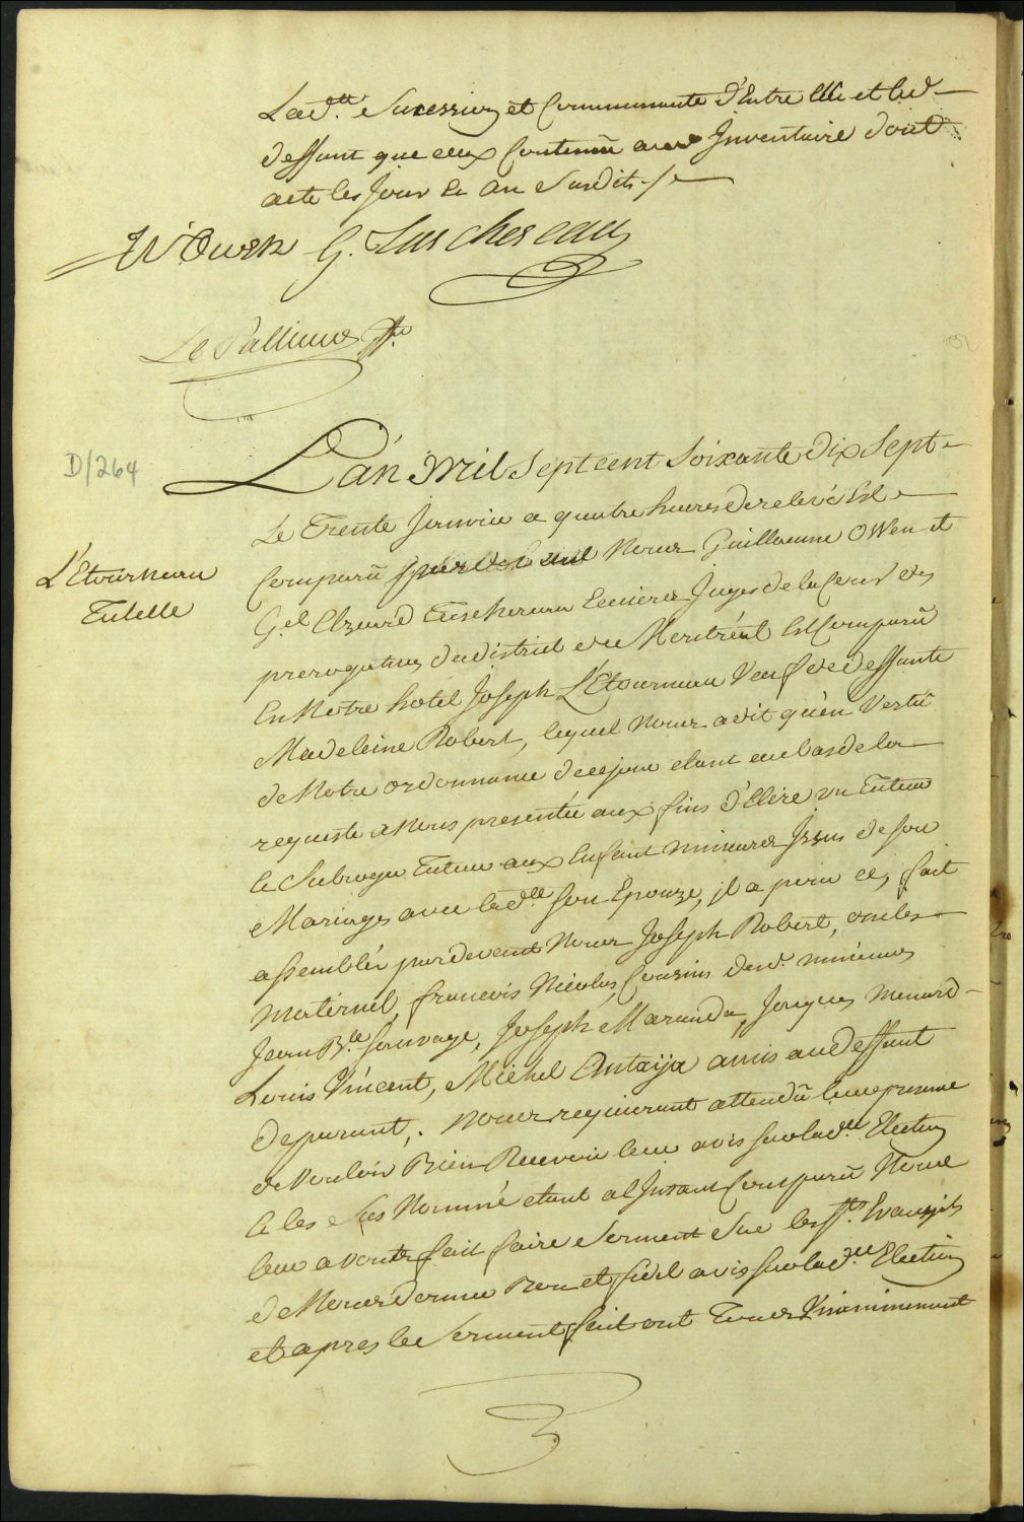 Lad.te Sucession et Communauté d'Entre Elle et led.
deffunt que ceux Contenu aud Inventaire dont
acte les Jour et an Susdits ./.
W Owen G. Tuschereau
Le Pallieur ffr.
D/264
L'án Mil Sept cent Soixante Dix Sept
Le Trente Janvier a quatre heures de relevé Est
L'Etourneau
Tutelle
Comparû pardevant Nous Guillaume OWen et
G.el Elzeard Tuschereau Ecuiers Juges de la Cour des
prerogatives du district de Montréal Est Comparû
En Notre hotel Joseph L'Etourneau Veuf de deffunte
Madeleine Robert, lequel Nous a dit qu'en Vertû
de Notre ordonnance de ce jour etant au bas de la
requeste a Nous presentée aux fins d'Elire un Tuteur
et Subroge Tuteur aux Enfant mineures Issus de Son
Mariage avec lad.te Son Epouze, il a fait
assemblér pardevant Nous Joseph Robert, oncles
Maternel, francois Nicolas, Cousins desd. mineures
Jean B.te Sauvage, Joseph Maranda, Jacques Menard
Louis Vincent, Michel Antaÿa amis au deffaut
de parent, Nous requerant attendû leur presence
de Vouloir Bien Recevoir leur avis Sur lad.te Election
et les Sus Nommé etant a l'Instant Comparû Nous
leur avons fait faire Serment Sur les S.ts Evangiles
de Nous donner Bon et fidel avis Sur lad.te Election
et apres le Serment fait ont Tous Unanimement